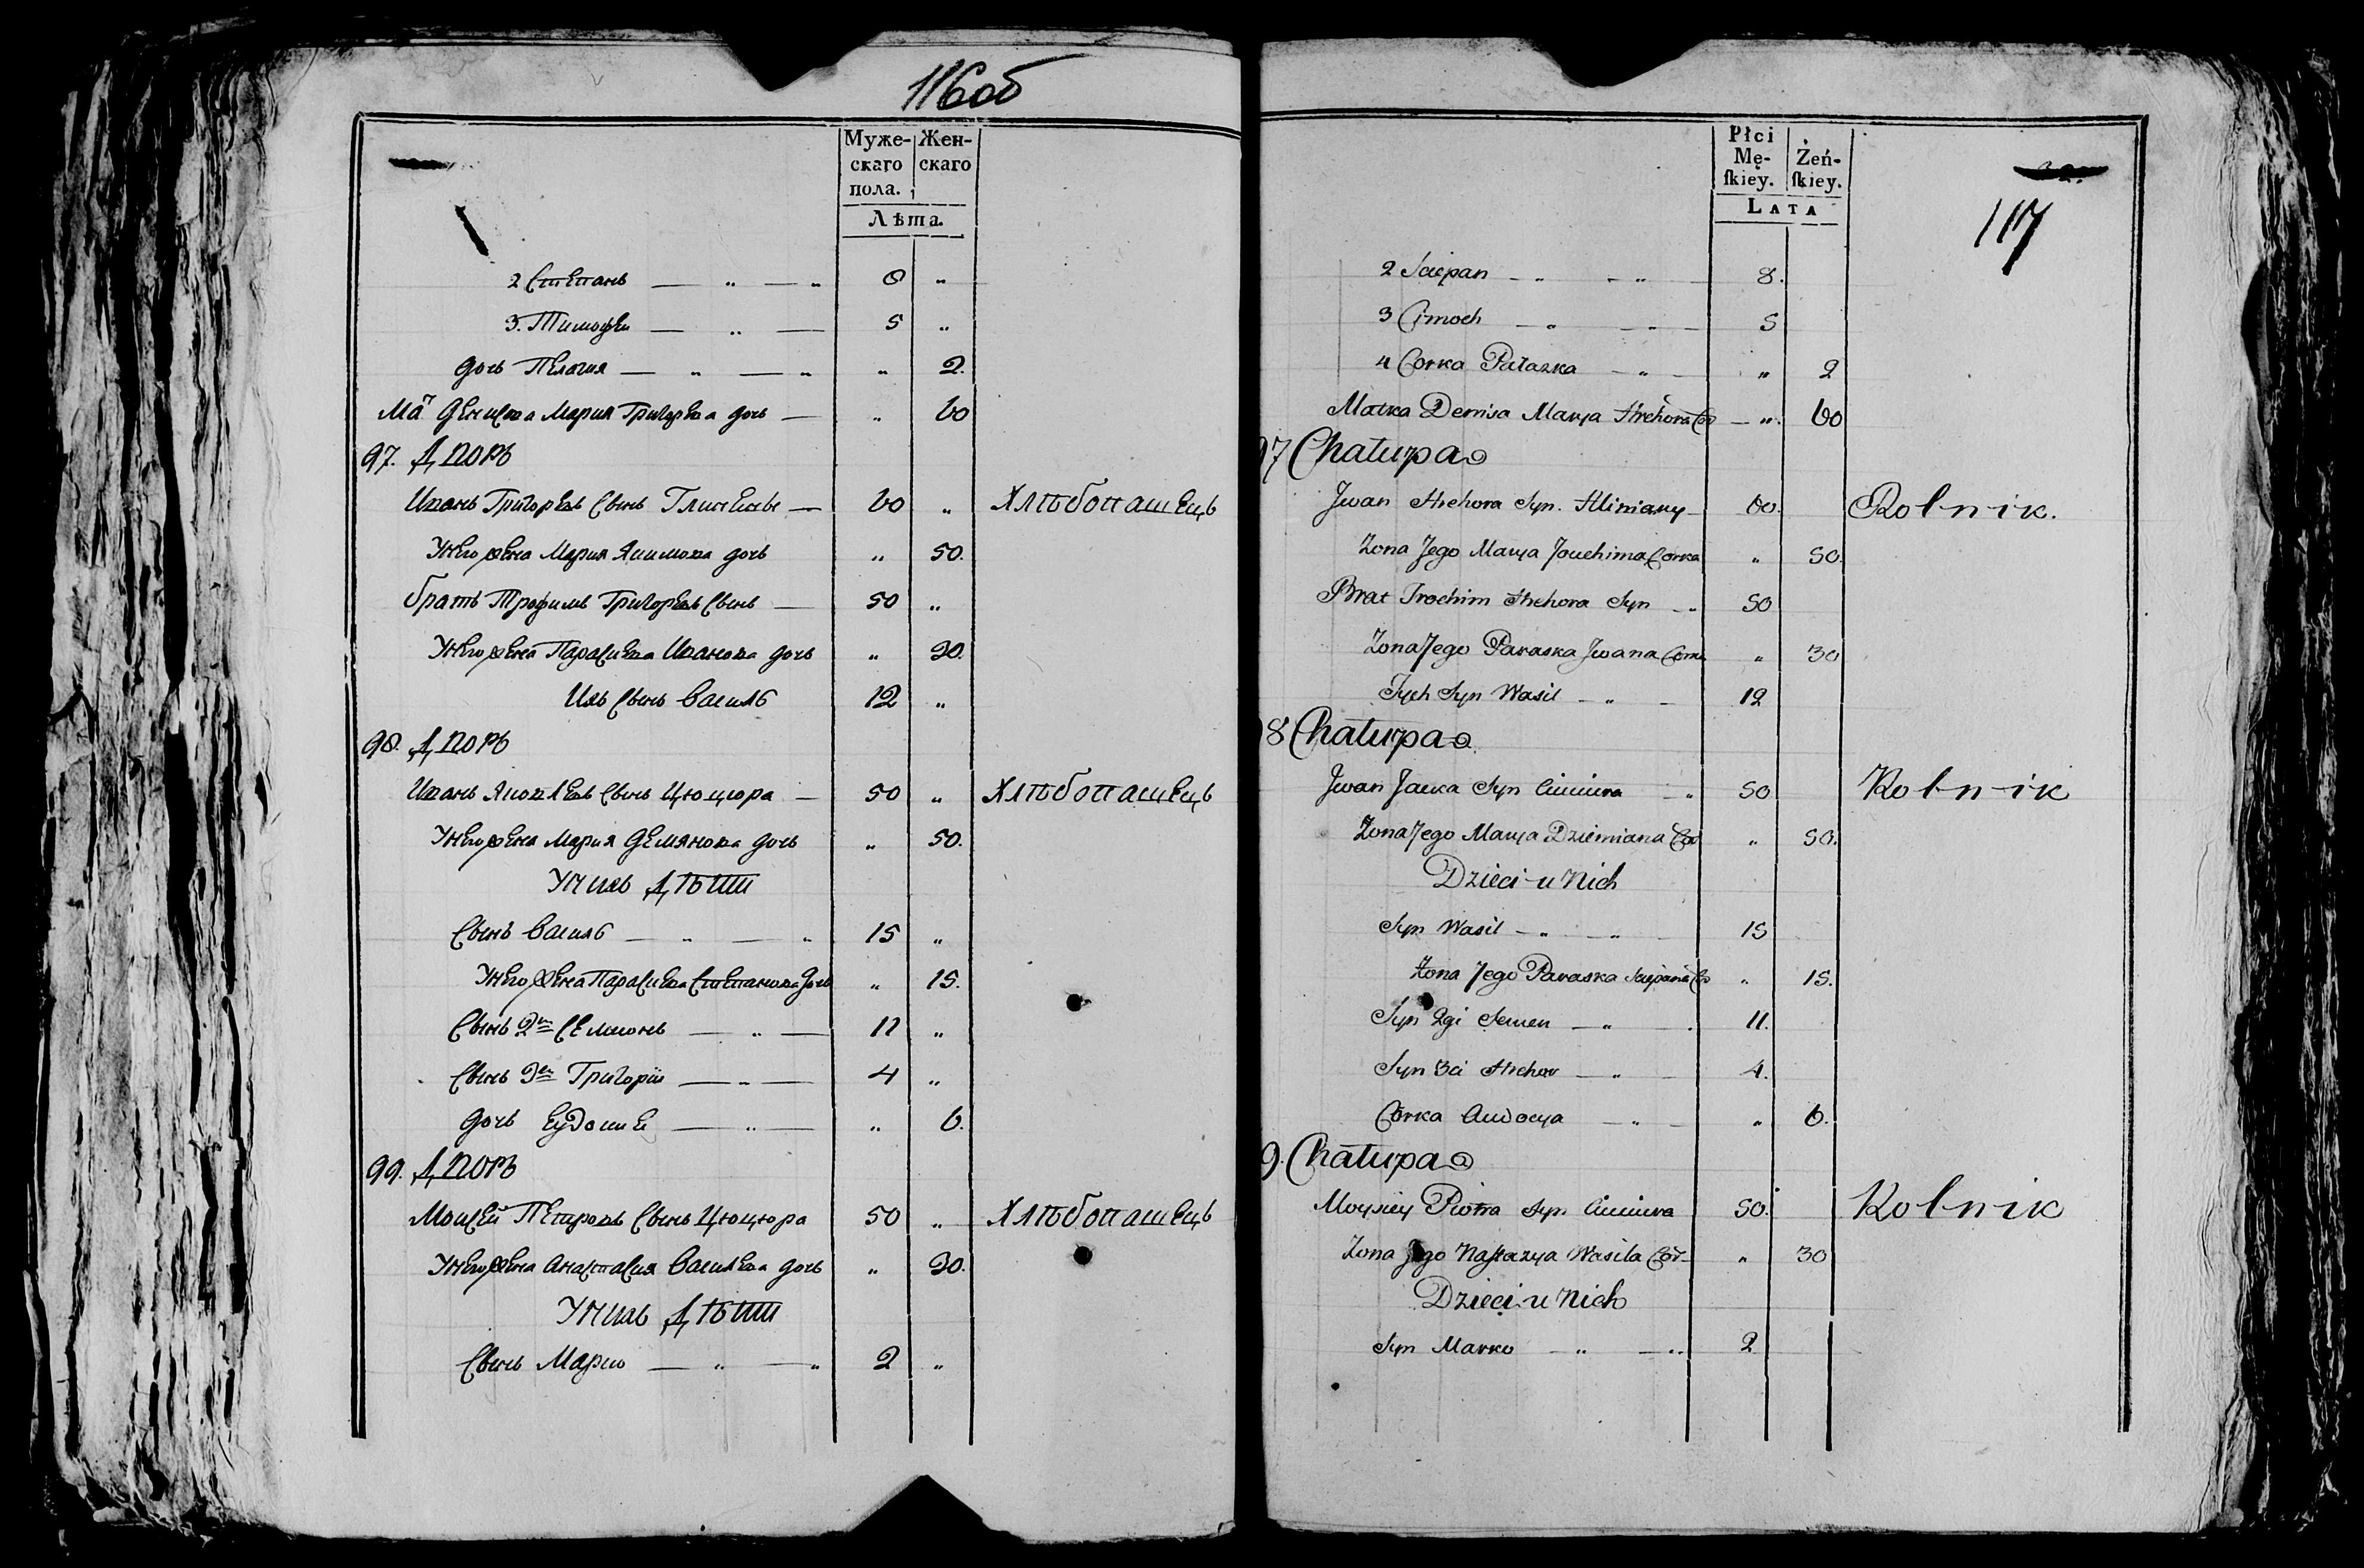 116об
Муже-
скаго
пола.
Жен-
скаго
Лѣта.
2 Степанъ — „ — „ 8 „
3. Тимофей — „ — 5 „
дочь Пелагия — „ — „ „ 2.
Мат Денисова Мария Григорева дочь — „ 60
97. Дворъ
Иванъ Григоревъ Сынъ — 60 „ Хлѣбопашецъ
Унего жена Мария Якимова дочь „ 50.
братъ Трофимъ Григоревъ Сынъ — 50 „
Унего жена Парасковя Иванова дочь „ 30.
Ихъ Сынъ Василь 12 „
98. Дворъ
Иванъ Яковлевъ Сынъ Цюцюра — 50 „ Хлѣбопашецъ
Унего жена Мария Демянова дочь „ 50.
Унихъ Дѣти
Сынъ Василь — „ — „ 15 „
Унего жена Степанова дочь „ 15.
Сынъ 2й Семионъ — „ — 11 „
Сынъ 3й Григорій — „ — 4 „
дочь — „ — „ 6.
99. Дворъ
Моисей Петровъ Сынъ Цюцюра 50 „ Хлѣбопашецъ
Унего жена Анастасия Василева дочь „ 30.
Унихъ Дѣти
Сынъ Марко — „ — „ 2 „
Płci
Mę-
ſkiey.
Żeń-
ſkiey.
LATA
117
2 Sciepan — „ — „ 8.
3 Cimoch — „ — „ 5
4 Corka Pałazka — „ „ 2
Matka Denisa Marya Hrehora Co — „ 60
97 Chałupa
Jwan Hrehora Syn. 60. Rolnik.
Zona Jego Marya Jouchima Corka „ 50.
Brat Trochim Hrehora Syn — „ 50
Zona Jego Paraska Jwana Corka „ 30
Tych Syn Wasil — „ — 12
98 Chałupa
Jwan Jacka Syn Ciuciura — „ 50 Rolnik
Zona Jego Marya Dziemiana Cor „ 50.
Dzieci u Nich
Syn Wasil — „ — „ 15
Zona Jego Paraska Sciepana Co „ 15.
Syn 2gi Semen — „ — 11.
Syn 3ci Hrehor — „ — 4.
Córka Awdocya — „ — „ 6.
99. Chałupa
Moysiey Piotra Syn Ciuciura 50. Rolnik
Zona Jego Nastazya Wasila Cór — „ 30
Dzieci u Nich
Syn Marko — „ — „ 2